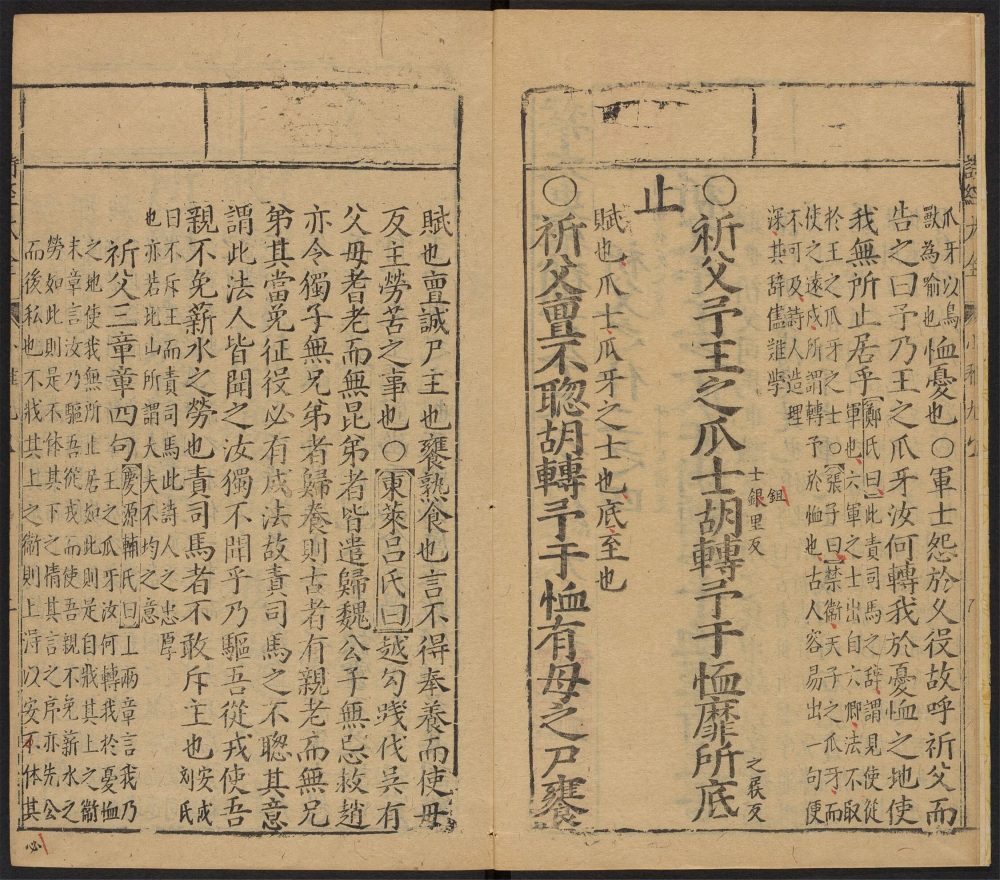 爪牙以鳥
獸為喻也恤憂也○軍士怨於久役故呼祈父而
告之曰予乃王之爪牙汝何轉我於憂恤之地使
我無所止居乎鄭氏曰此責司馬之辭謂見使從
軍也六軍之士出自六卿法不取
於王之爪牙之士○張子曰禁衛天子之爪牙而
使之遠戍所謂轉予於恤也古人容易出一句便
不可及詩人造理
深其辭儘難學
○祈父予王之爪士鉏里反
士銀里反
胡轉予于恤靡所底之履反
止
賦也爪士爪牙之士也底至也
○祈父亶不聰胡轉予于恤有母之尸饔
賦也亶誠尸主也饔熟食也言不得奉養而使母
反主勞苦之事也○東萊呂氏曰越勾踐伐吳有
父母耆老而無昆弟者皆遣歸魏公子無忌救趙
亦令獨子無兄弟者歸養則古者有親老而無兄
弟其當免征役必有成法故責司馬之不聰其意
謂此法人皆聞之汝獨不聞乎乃驅吾從戎使吾
親不免薪水之勞也責司馬者不敢斥王也安成
劉氏
曰不斥王而責司馬此詩人之忠厚
也亦若北山所謂大夫不均之意
祈父三章章四句慶源輔氏曰上兩章言我乃
王之爪牙汝何轉我於憂恤
之地使我無所止居如此則是自戕其上之衛
末章言汝乃驅吾從戎而使吾親不免薪水之
勞如此則是不体其下之情其言之序亦先公
而後私也不戕其上之衛則上得以安不体其